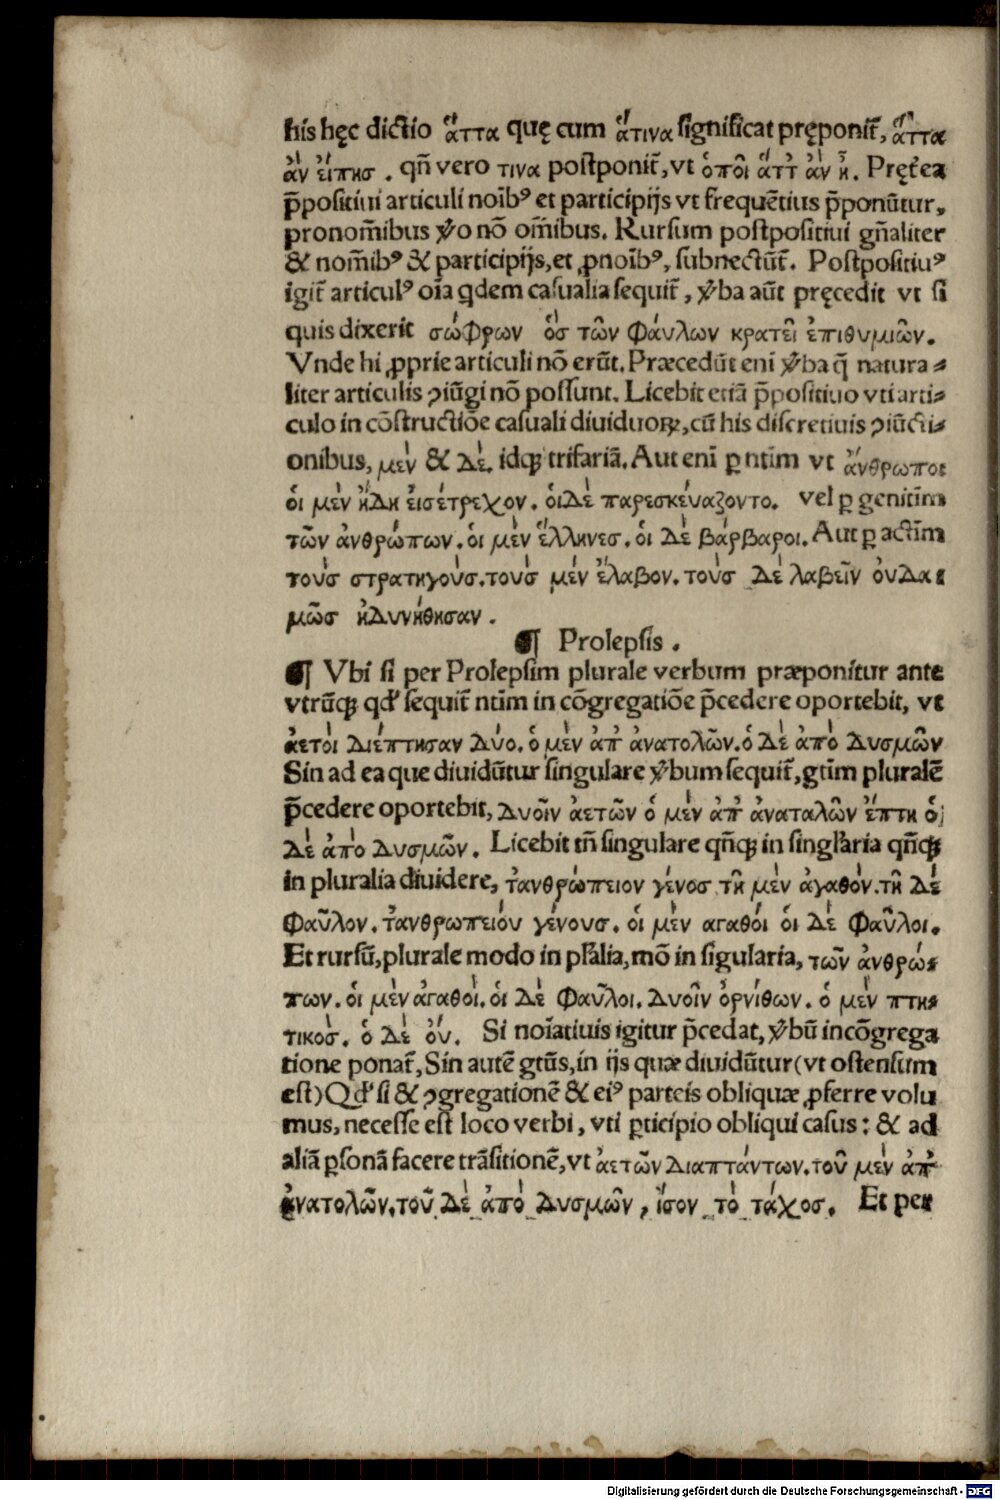 his hęc dictio ἅττα quę cum ἅτινα significat pręponit᷑, ἅττα
ἀν ἐίπησ . qn̄ vero τινα postponit᷑, vt ὁπōι ἅττ̓ ἀν ἦ. Pręt̓ea
p̄positiui articuli noīb⁹ et participijs vt frequētius p̄ponūtur,
pronom̄ibus ꝟo nō om̄ibus. Rursum postpositiui gn̄aliter
& nom̄ib⁹ & participijs, et ꝓnoīb⁹, subnectūt᷑. Postpositiu⁹
igit᷑ articul⁹ oīa qdem casualia sequit᷑, ꝟba aūt pręcedit vt si
quis dixerit σώφρων ὁσ τῶν φάυλων κρατεῖ ἐπιθυμιῶν.
Vnde hi ꝓprie articuli nō erūt. Præcedūt enī ꝟba q̄ natura⸗
liter articulis ꝯiūgi nō possunt. Licebit etiā p̄positiuo vti arti⸗
culo in cōstructiōe casuali diuiduoꝝ, cū his discretiuis ꝯiūcti⸗
onibus, μεν & δε. idqꝫ trifariā. Aut enī ꝑ ntīm vt ἀνθρωποι
ὁι μεν ἤδη ἐισέτρεχον. ὁιδε παρεσκέυαζοντο. vel ꝑ genitīm
τῶν ἀνθρώπων. ὁι μὲν ἕλληνεσ. ὁι δὲ βάρβαροι. Aut ꝑ actīm
τοὺσ στρατηγοὺσ. τοὺσ μὲν ἔλαβον. τοὺσ δὲ λαβεῖν ὀυδα⸗
μῶσ ἠδυνήθησαν .
¶ Prolepsis .
¶ Vbi si per Prolepsim plurale verbum præponitur ante
vtrūqꝫ qd̓ sequit᷑ ntīm in cōgregatiōe p̄cedere oportebit, vt
ἀετὸι διέπτησαν δύο. ὁ μὲν ἀπ̓ ἀνατολῶν. ὁ δὲ ἀπὸ δυσμῶν
Sin ad ea que diuidūtur singulare ꝟbum sequit᷑, gtīm pluralē
p̄cedere oportebit, δυοῖν ἀετῶν ὁ μὲν ἀπ̓ ἀναταλῶν ἔπτη ὁ
δὲ ἀπὸ δυσμῶν. Licebit tn̄ singulare qn̄qꝫ in singl̓aria qn̄qꝫ
in pluralia diuidere, τ̓ανθρώπειον γένοσ τῆ μὲν ἀγαθὸν. τῆ δὲ
φαῦλον. τ̓ανθρωπείου γένουσ. ὁι μὲν αγαθόι ὁι δὲ φαῦλοι.
Et rursū, plurale modo in pl̓alia, mō in sigularia, τῶν ἀνθρώ⸗
πων. ὁι μὲν ἀγαθόι. ὁι δὲ φαῦλοι. δυοῖν ὀρνίθων. ὁ μὲν πτη⸗
τικοσ. ὁ δὲ ὀύ. Si noīatiuis igitur p̄cedat, ꝟbū incōgrega
tione ponat᷑, Sin autē gtūs, in ijs quæ diuidūtur (vt ostensum
est) Qd̓ si & ꝯgregationē & ei⁹ parteis obliquæ ꝓferre volu
mus, necesse est loco verbi, vti ꝑticipio obliqui casus : & ad
aliā ꝑsonā facere trāsitionē, vt ἀετῶν διαπτάντων. τοῦ μὲν ἀπ̓
ἀνατολῶν. τοῦ δὲ ἀπὸ δυσμῶν, ἴσον τὸ τάχοσ. Et per
Digitalisierung gefördert durch die Deutsche Forschungsgemeinschaft - DFG